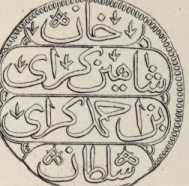 خان
شاهین کرای
بن احمد کرای
سلطان